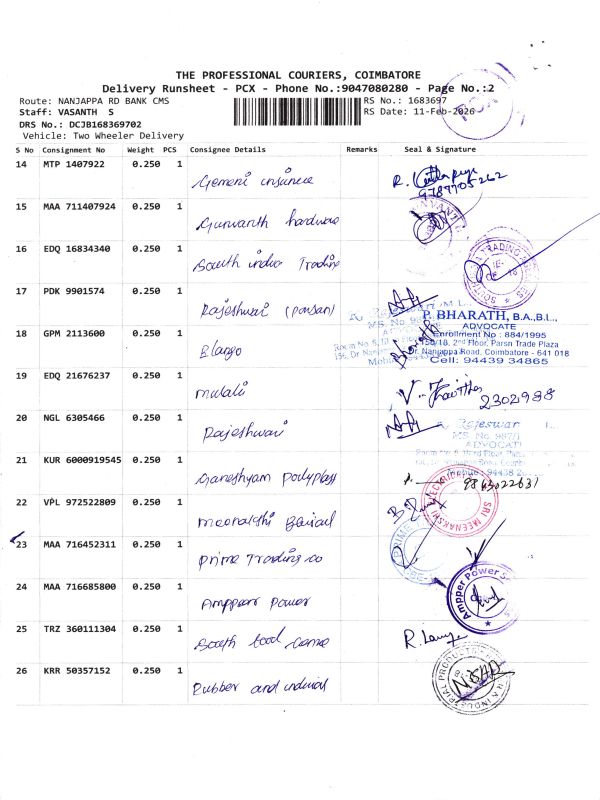 THE PROFESSIONAL COURIERS, COIMBATORE
Delivery Runsheet - PCX - Phone No.:9047080280 - Page No.:2
Route: NANJAPPA RD BANK CMS
RS No.: 1683697
Staff: VASANTH S
RS Date: 11-Feb-2026
DRS No.: DCJB168369702
Vehicle: Two Wheeler Delivery
S No Consignment No Weight PCS Consignee Details Remarks Seal & Signature
14 MTP 1407922 0.250 1 Gemeni insurance
9787705262
15 MAA 711407924 0.250 1 Gurvanth hardware
16 EDQ 16834340 0.250 1 South india Trading
17 PDK 9901574 0.250 1 Rajeshwari (parsan)
P. BHARATH, B.A.,B.L.,
ADVOCATE
Enrollment No : 884/1995
156/18, 2nd Floor, Parsn Trade Plaza
Dr. Nanjappa Road, Coimbatore - 641 018
Cell: 94439 34865
18 GPM 2113600 0.250 1 Elango
19 EDQ 21676237 0.250 1 mulali
2302988
20 NGL 6305466 0.250 1 Rajeshwari
Rajeswari
ADVOCATE
21 KUR 6000919545 0.250 1 Ganeshyam polyplass
9843022631
22 VPL 972522809 0.250 1 meenakshi
SRI MEENAKSHI
23 MAA 716452311 0.250 1 prime Trading co
PRIME
24 MAA 716685800 0.250 1 Ampper power
Ampper Power
25 TRZ 360111304 0.250 1 South
26 KRR 50357152 0.250 1 Rubber and
INDUSTRIAL PRODUCTS